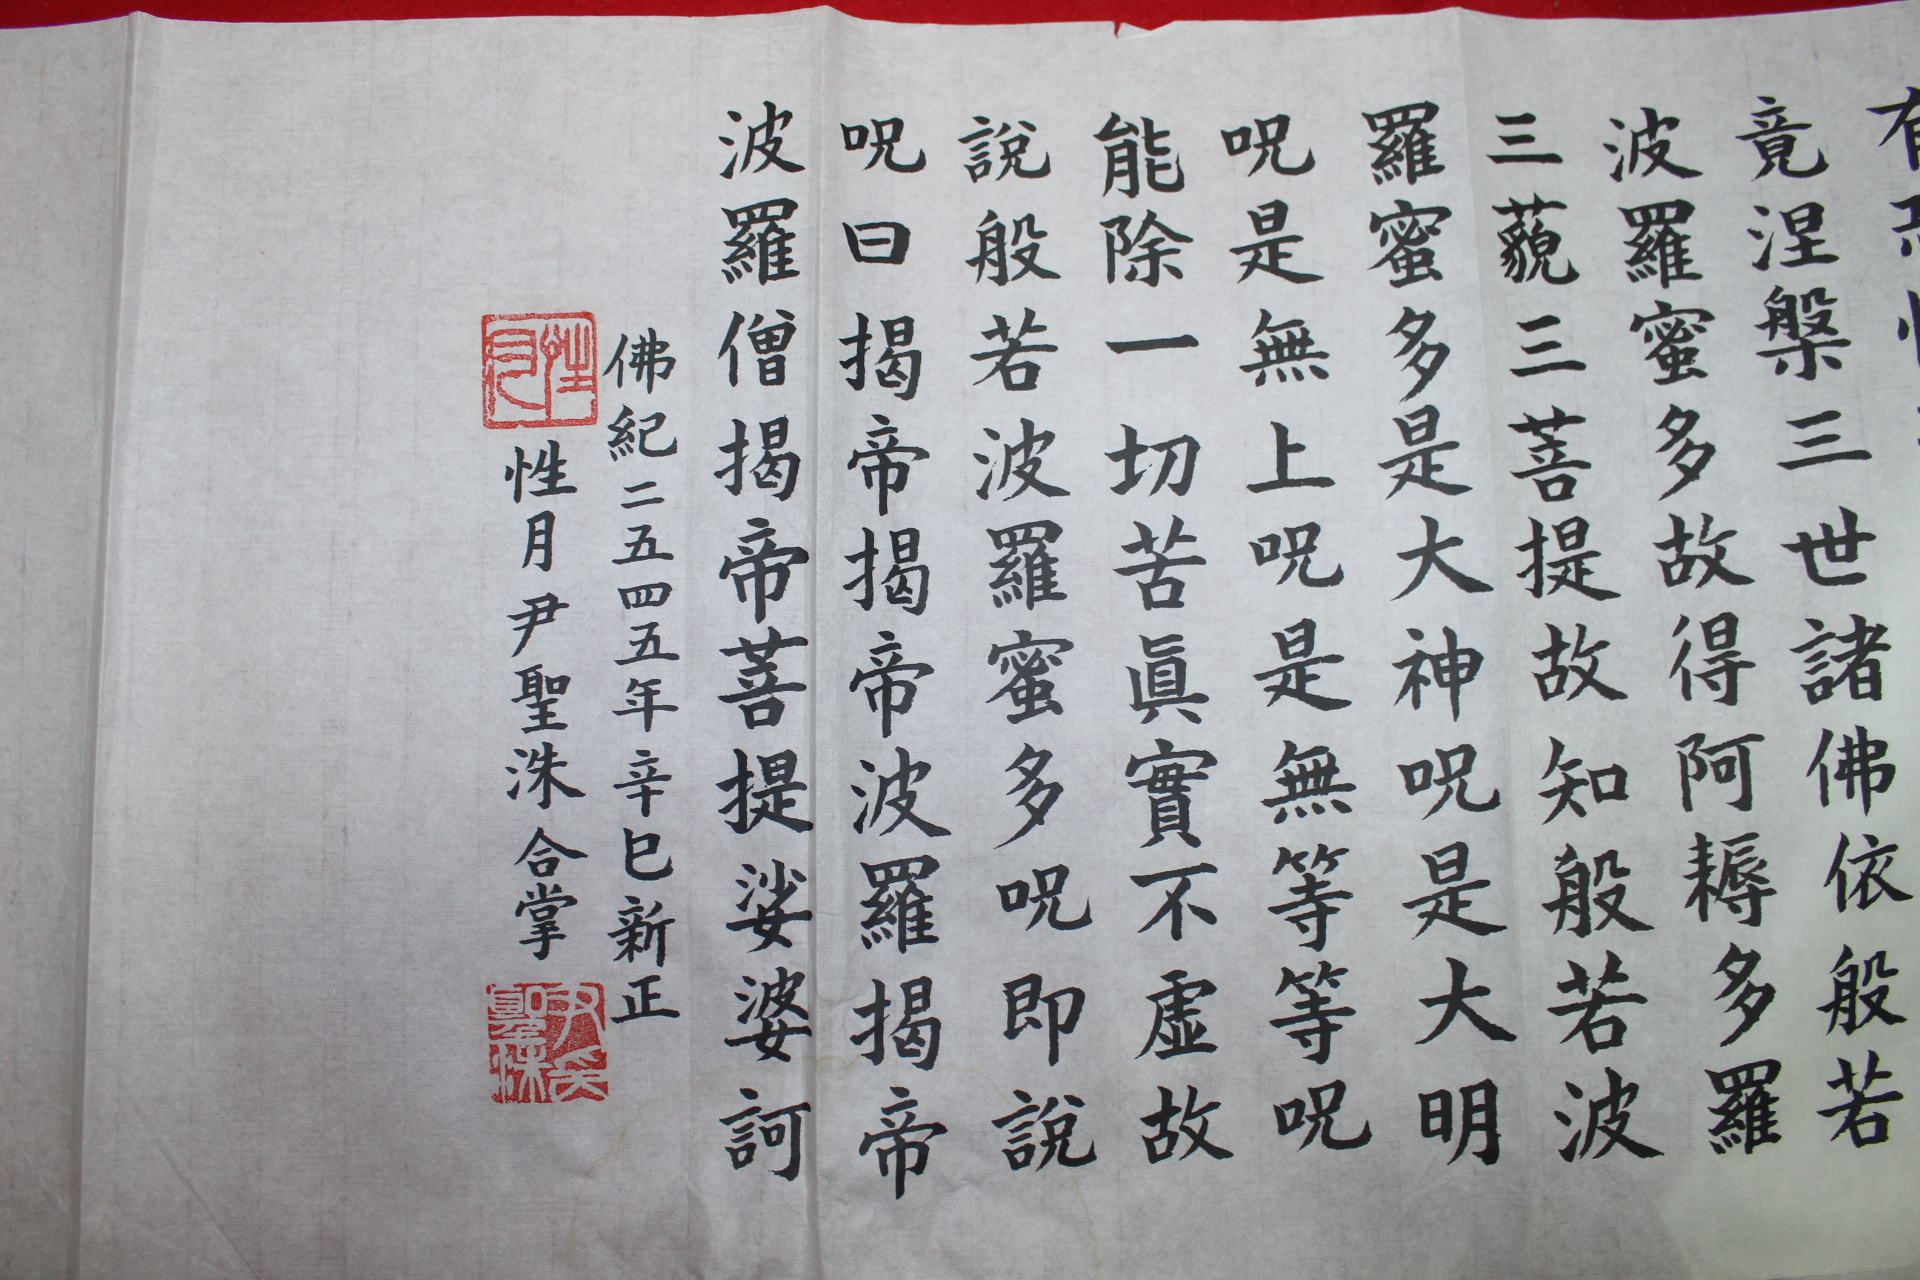 竟涅槃三世諸佛依般若
波羅蜜多故得阿耨多羅
三藐三菩提故知般若波
羅蜜多是大神呪是大明
呪是無上呪是無等等呪
能除一切苦眞實不虛故
說般若波羅蜜多呪即說
呪曰揭帝揭帝波羅揭帝
波羅僧揭帝菩提娑婆訶
佛紀二五四五年辛巳新正
性月尹聖洙合掌
性月
尹聖洙